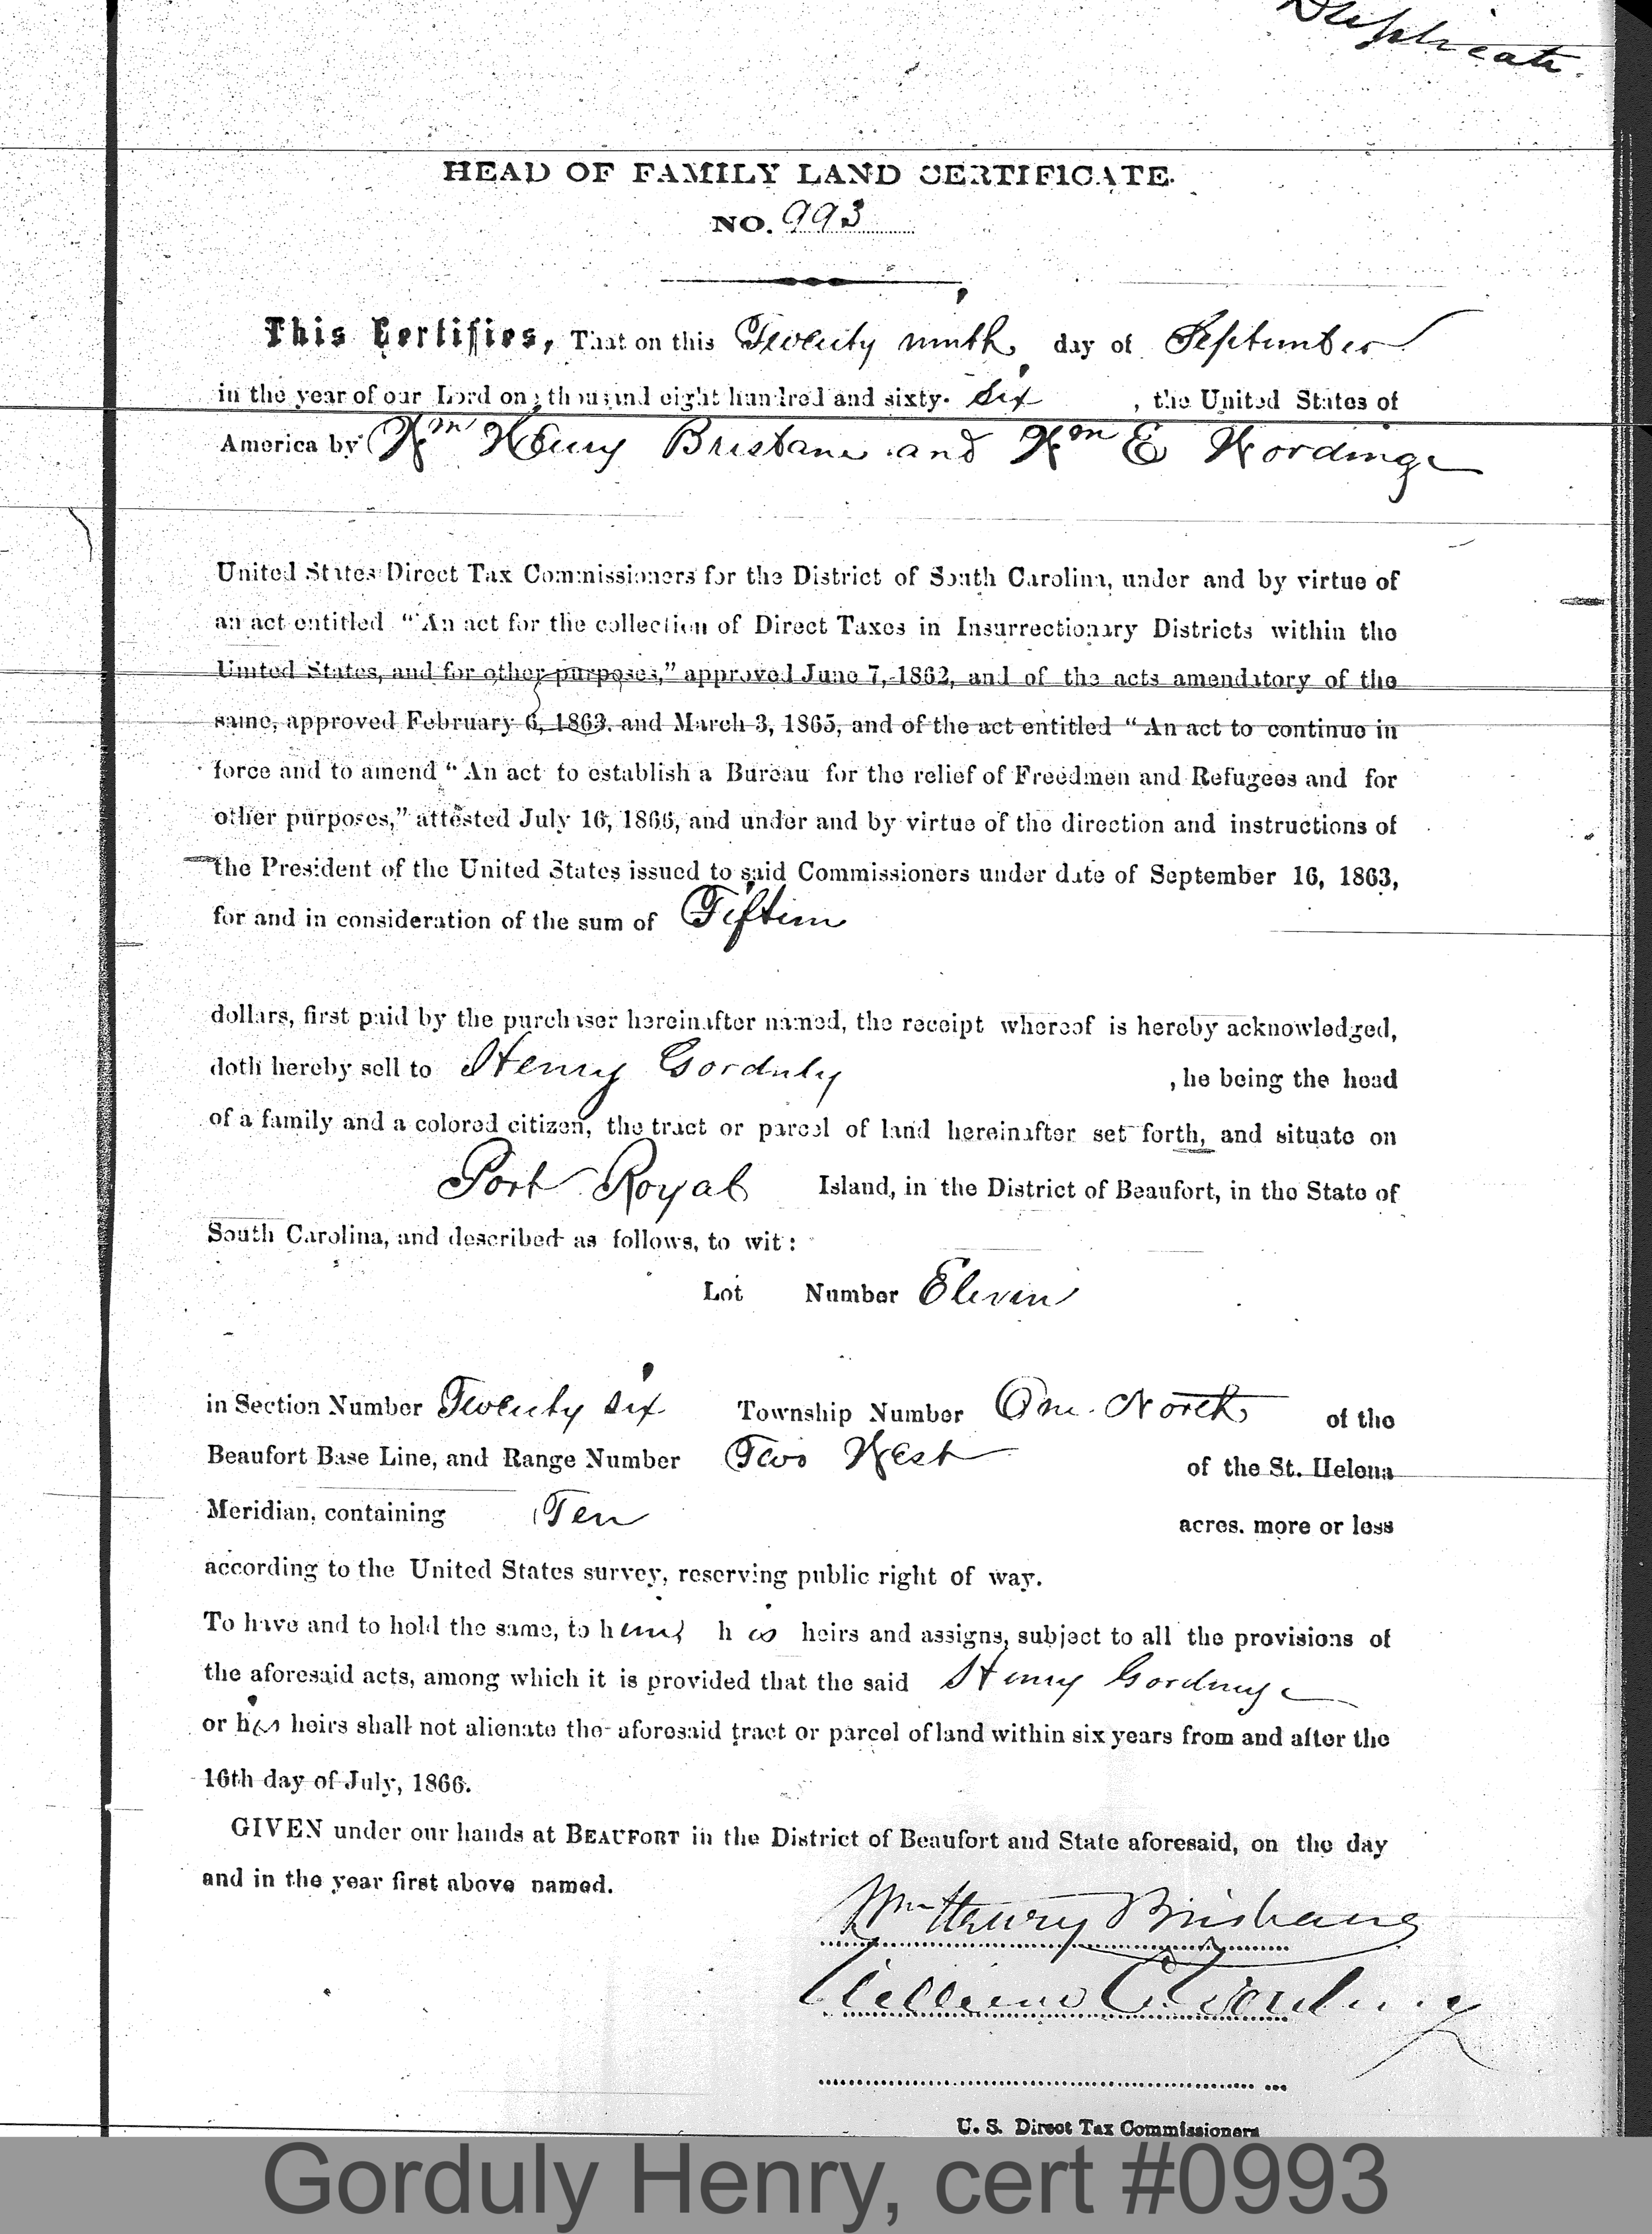 Duplicate.
HEAD OF FAMILY LAND CERTIFICATE.
NO. 993
This Certifies, That on this Twenty ninth day of September
in the year of our Lord one thousand eight hundred and sixty- six , the United States of
America by Wm Henry Brisbane and Wm E Wording
United States Direct Tax Commissioners for the District of South Carolina, under and by virtue of
an act entitled "An act for the collection of Direct Taxes in Insurrectionary Districts within the
United States, and for other purposes," approved June 7, 1862, and of the acts amendatory of the
same, approved February 6, 1863, and March 3, 1865, and of the act entitled "An act to continue in
force and to amend "An act to establish a Bureau for the relief of Freedmen and Refugees and for
other purposes," attested July 16, 1866, and under and by virtue of the direction and instructions of
the President of the United States issued to said Commissioners under date of September 16, 1863,
for and in consideration of the sum of Fifteen
dollars, first paid by the purchaser hereinafter named, the receipt whereof is hereby acknowledged,
doth hereby sell to Henry Gorduly , he being the head
of a family and a colored citizen, the tract or parcel of land hereinafter set forth, and situate on
Port Royal Island, in the District of Beaufort, in the State of
South Carolina, and described as follows, to wit:
Lot Number Eleven
in Section Number Twenty six Township Number One North of the
Beaufort Base Line, and Range Number Two West of the St. Helena
Meridian, containing Ten acres, more or less
according to the United States survey, reserving public right of way.
To have and to hold the same, to him his heirs and assigns, subject to all the provisions of
the aforesaid acts, among which it is provided that the said Henry
or his heirs shall not alienate the aforesaid tract or parcel of land within six years from and after the
16th day of July, 1866.
GIVEN under our hands at BEAUFORT in the District of Beaufort and State aforesaid, on the day
and in the year first above named.
Wm Henry Brisbane
William E. Wording
U. S. Direct Tax Commissioners
Gorduly Henry, cert #0993